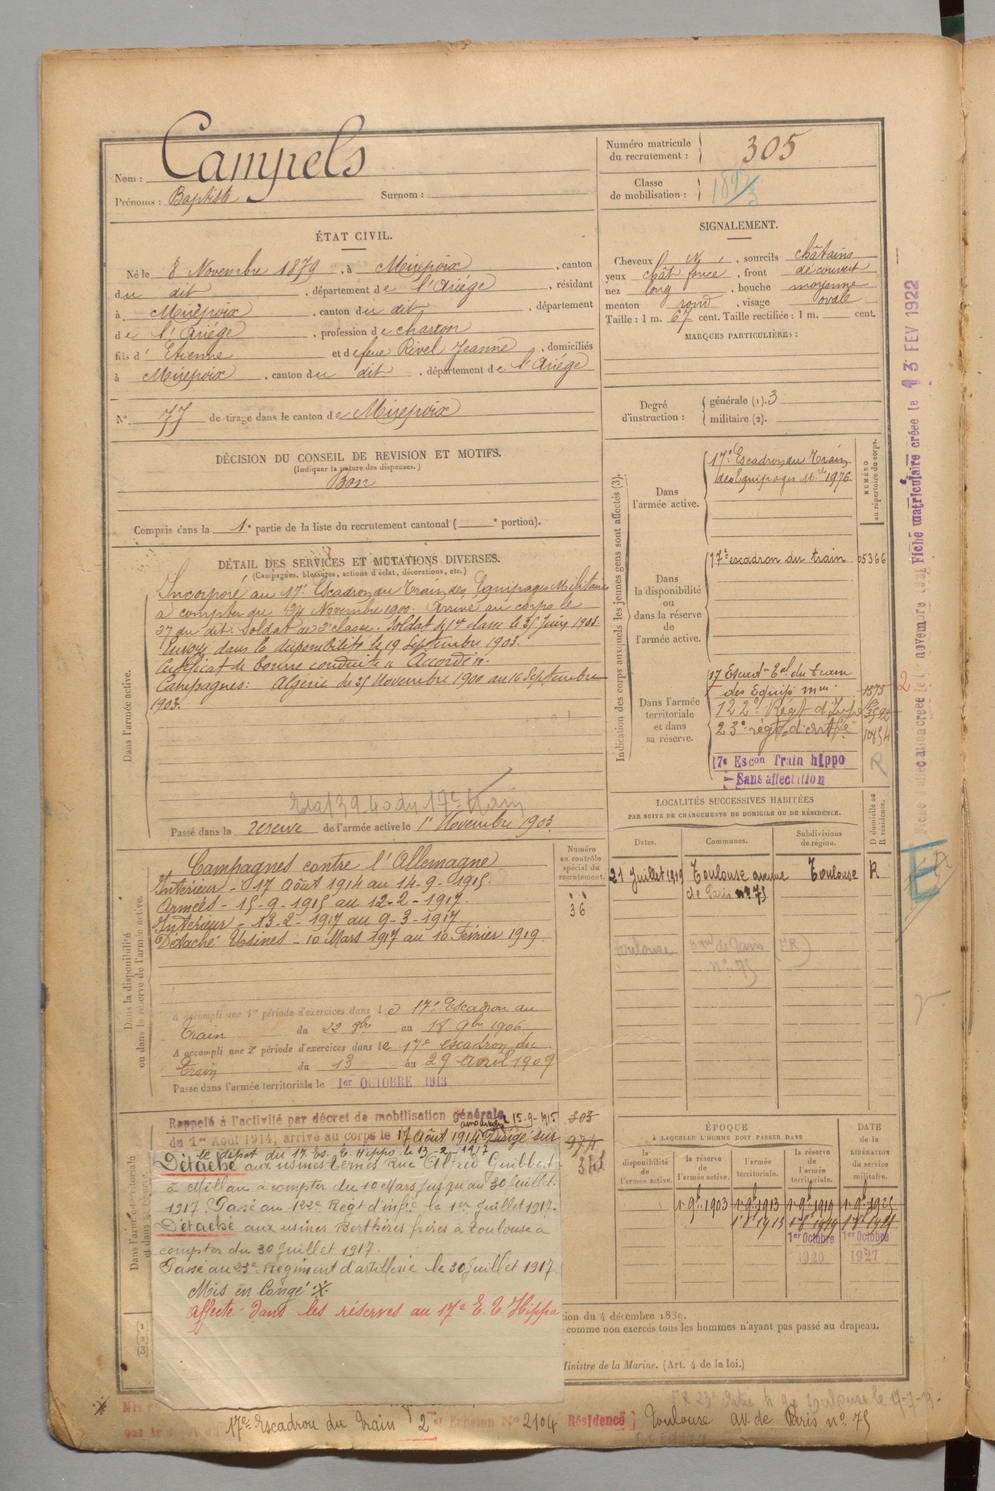 Nom : Campels
Prénoms : Baptiste Surnom :
Numéro matricule du recrutement : 305
Classe de mobilisation :
ÉTAT CIVIL.
Né le 8 Novembre 1879, à Mirepoix, canton
du dit, département de l'Ariége, résidant
à Mirepoix, canton du dit, département
de l'Ariége, profession de charron
fils d' Etienne et de feue Rivel Jeanne, domiciliés
à Mirepoix, canton du dit, département de l'Ariége
N° 77 de tirage dans le canton de Mirepoix
SIGNALEMENT.
Cheveux, sourcils châtains
yeux chât foncé, front découvert
nez long, bouche moyenne
menton rond, visage ovale
Taille : 1 m. 67 cent. Taille rectifiée : 1 m. cent.
MARQUES PARTICULIÈRES :
Degré d'instruction : générale (1). 3
militaire (2).
DÉCISION DU CONSEIL DE REVISION ET MOTIFS.
(Indiquer la nature des dispenses.)
Bon
Compris dans la 1e partie de la liste du recrutement cantonal ( e portion).
DÉTAIL DES SERVICES ET MUTATIONS DIVERSES.
(Campagnes, blessures, actions d'éclat, décorations, etc.)
Dans l'armée active.
Incorporé au 17e Escadron du Train des Equipages Militaires
à compter du Novembre 1900. Arrivé au corps le
27 du dit. Soldat de 2e classe. Soldat de 1re classe le 25 Juin 1901.
Envoyé dans la disponibilité le 19 Septembre 1903.
Certificat de bonne conduite "Accordé".
Campagnes : Algérie du 25 Novembre 1900 au 16 Septembre
1903.
Passé dans la réserve de l'armée active le 1er Novembre 1903.
Dans la disponibilité ou dans la réserve de l'armée active.
Campagnes contre l'Allemagne
Intérieur - 17 Août 1914 au 14-9-1915
Armées - 15-9-1915 au 12-2-1917
Intérieur - 13-2-1917 au 9-3-1917
Détaché Usines - 10 Mars 1917 au 10 Février 1919
A accompli une 1re période d'exercices dans le 17e Escadron du
Train du 22 8bre au 18 9bre 1906
A accompli une 2e période d'exercices dans le 17e escadron du
Train du 13 au 29 avril 1909
Passé dans l'armée territoriale le 1er OCTOBRE 1913
Numéro au contrôle spécial du recrutement.
36
Rappelé à l'activité par décret de mobilisation générale
du 1er Août 1914, arrivé au corps le 17 Août 1914
15-9-1915
Dirigé sur
le dépôt du 17e Es. E. Hippo. le 13-2-1917
Détaché aux usines Bernès rue Alfred Guibbert
à Millau à compter du 10 Mars jusqu'au 30 Juillet
1917. Passé au 122e Régt d'infie le 1er Juillet 1917.
Détaché aux usines Berthères frères à Toulouse à
compter du 30 Juillet 1917.
Passé au 23e Régiment d'artillerie le 30 Juillet 1917
Mis en Congé
Affecté dans les réserves au 17e E. T Hippo
303
974
Indication des corps auxquels les jeunes gens sont affectés (3).
Dans l'armée active.
17e Escadron du Train
des Equipages Mle 1976
NUMÉRO au répertoire du corps.
Dans la disponibilité ou dans la réserve de l'armée active.
17e escadron du train 05366
Dans l'armée territoriale et dans sa réserve.
17 Escadn Eal du train
des Equip. mres 1875
122e Régt d'Infie
23e régt d'artie
17e Escon Train hippo
Sans affectation
R
LOCALITÉS SUCCESSIVES HABITÉES
PAR SUITE DE CHANGEMENTS DE DOMICILE OU DE RÉSIDENCE.
Dates. Communes. Subdivisions de région. D domicile ou R résidence.
21 Juillet 1919 Toulouse avenue de Paris n° 75 Toulouse R
Toulouse n° 75 (R)
ÉPOQUE
À LAQUELLE L'HOMME DOIT PASSER DANS
DATE de la LIBÉRATION du service militaire.
la disponibilité de l'armée active.
la réserve de l'armée active.
l'armée territoriale.
la réserve de l'armée territoriale.
1er 9bre 1903 1er 9bre 1913 1er 9bre 1919
1er Octobre 1920
1er Octobre 1927
tion du 4 décembre 1830.
comme non exercés tous les hommes n'ayant pas passé au drapeau.
Ministre de la Marine. (Art. 4 de la loi.)
17e Escadron du Train 2e Echelon N° 2104 Résidence Toulouse av. de Paris n° 75
Fiche matriculaire créée le 13 FEV 1922